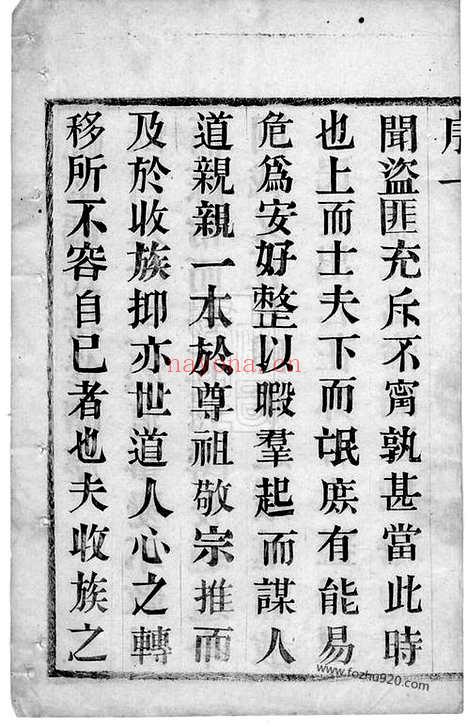 序一
聞盜匪充斥不甯孰甚當此時
也上而士夫下而氓庶有能易
危爲安好整以暇羣起而謀人
道親親一本於尊祖敬宗推而
及於收族抑亦世道人心之轉
移所不容自已者也夫收族之
nayona.cn
www.fozhu920.com